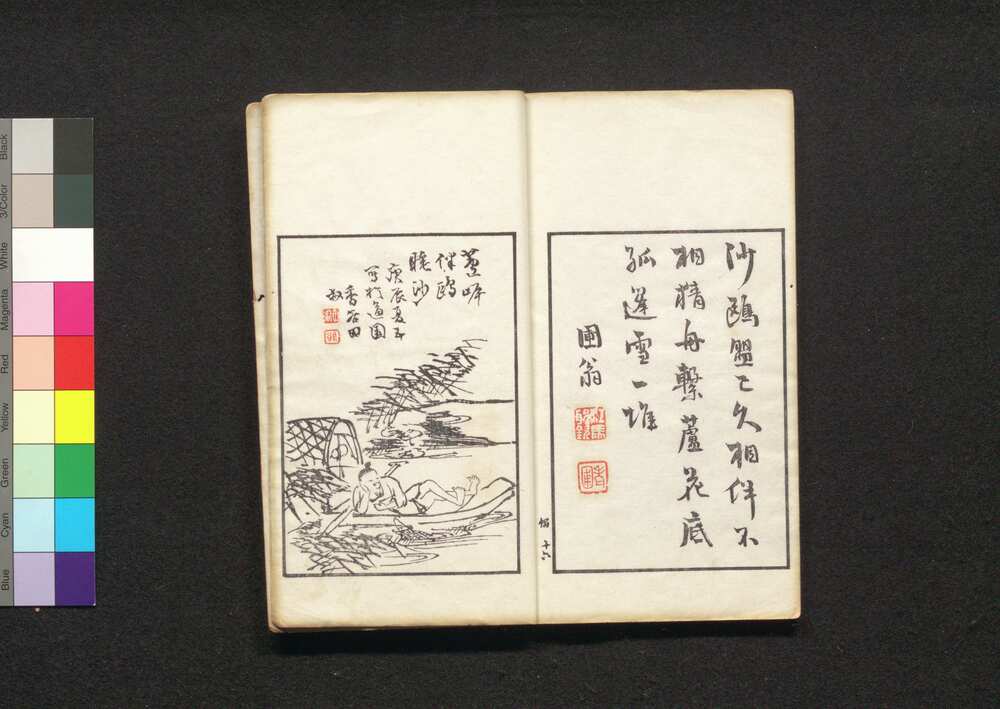 沙鷗盟已久相伴不
相猜舟繋蘆花底
孤篷雪一堆
圃翁
老圃
蘆岸
伴鷗
眠沙
庚辰夏五
寫於
香谷田
叔
十六
Black
3/Color
White
Magenta
Red
Yellow
Green
Cyan
Blue